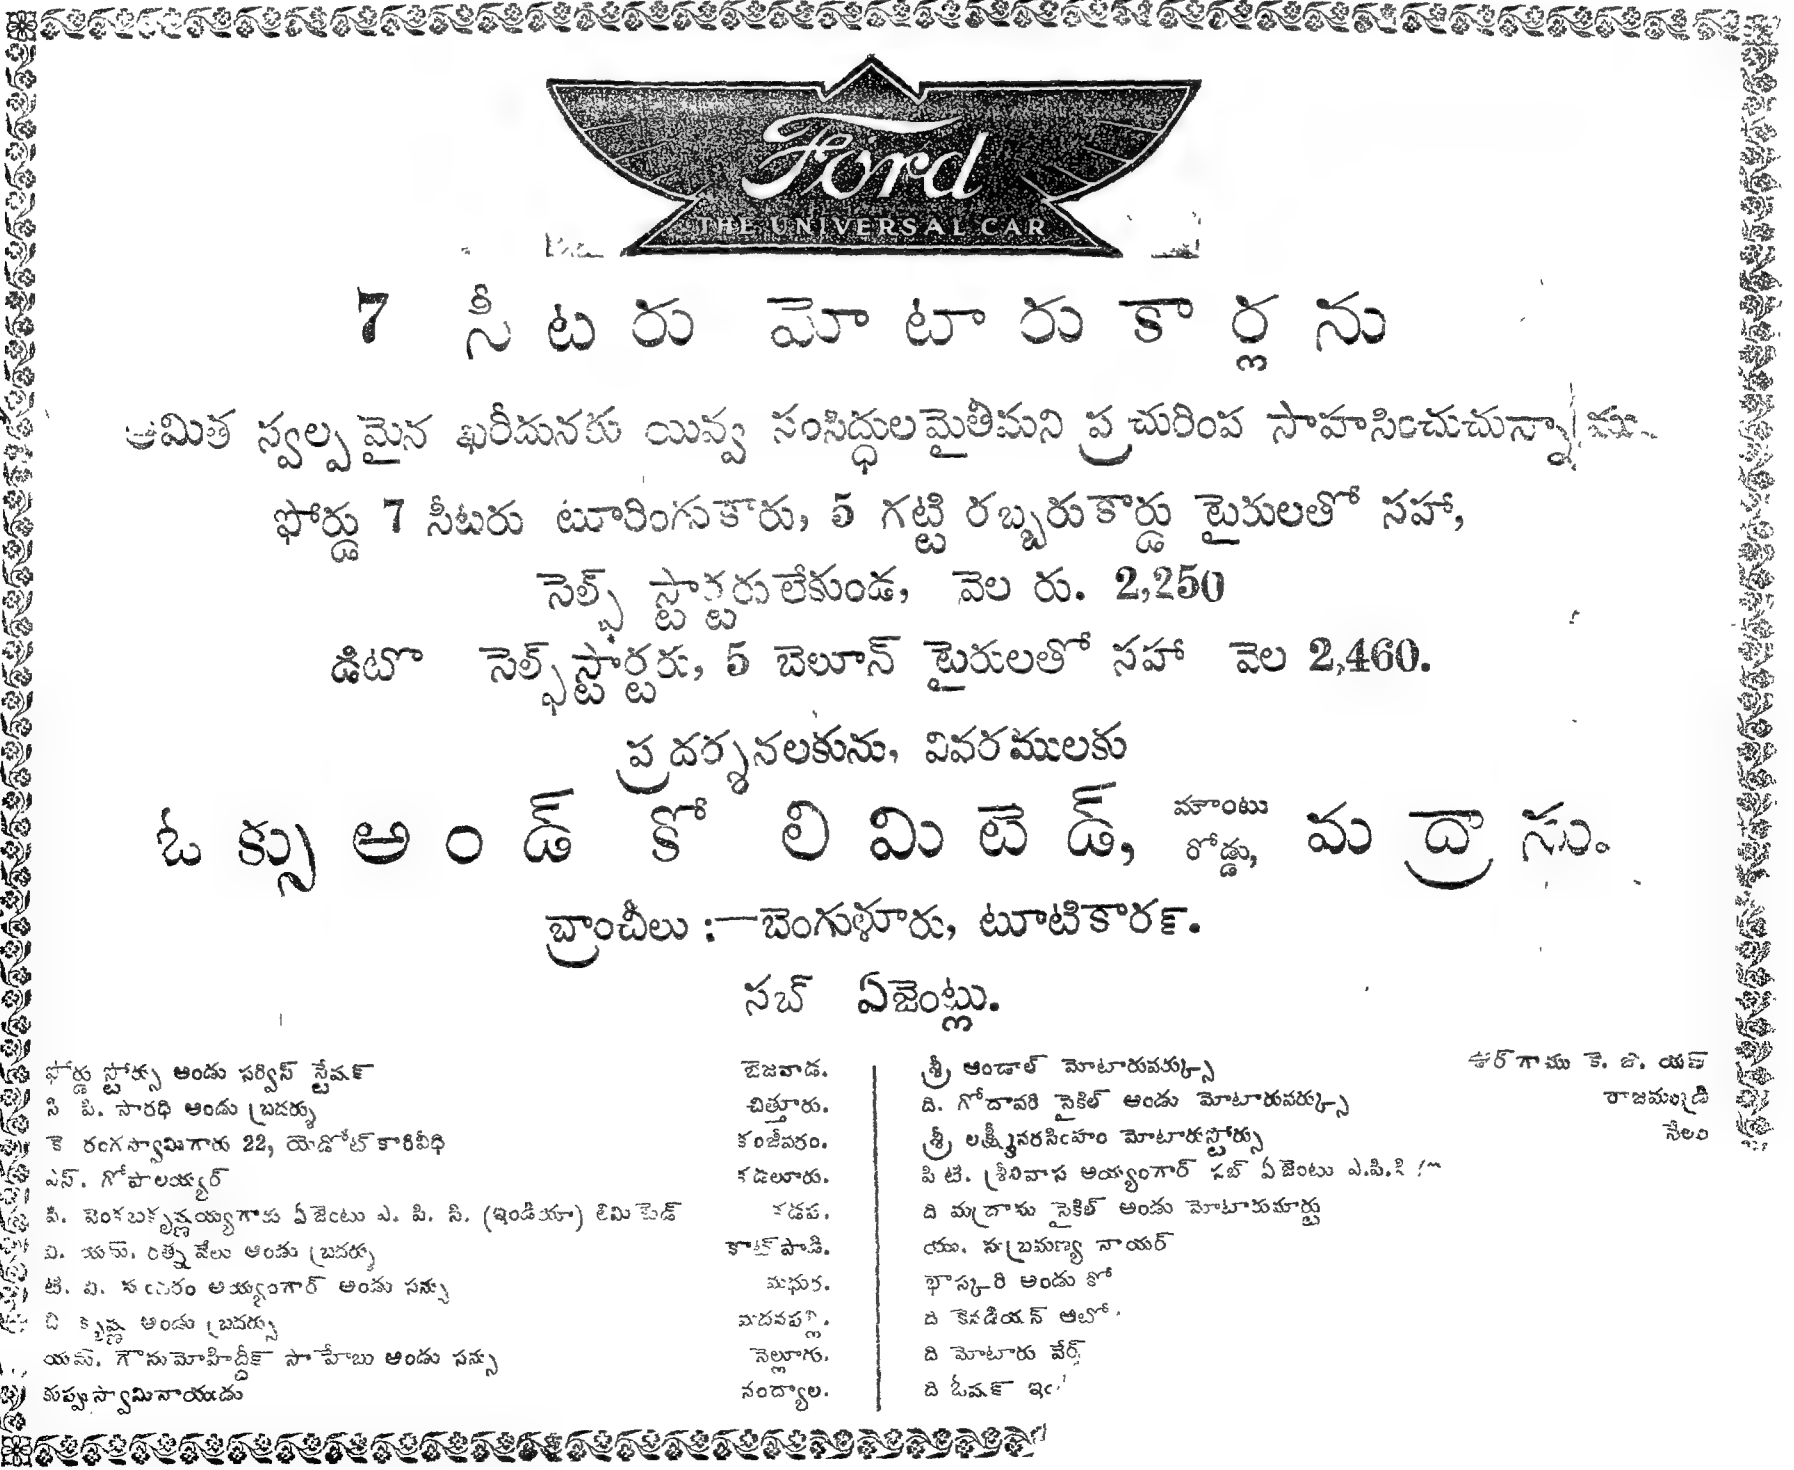 Ford
THE UNIVERSAL CAR
7 సీటరు మోటారుకార్లను
అమిత స్వల్పమైన ఖరీదునకు యివ్వ సంసిద్ధులమైతిమని ప్రచురింప సాహసించుచున్నాము.
ఫోర్డు 7 సీటరు టూరింగుకారు, 5 గట్టి రబ్బరుకార్డు టైరులతో సహా,
సెల్ఫ్ స్టార్టరులేకుండ, వెల రు. 2,250
డిటొ సెల్ఫ్‌స్టార్టరు, 5 బెలూన్ టైరులతో సహా వెల 2,460.
ప్రదర్శనలకును, వివరములకు
ఓక్సు అండ్ కో లిమిటెడ్, మౌంటు రోడ్డు, మద్రాసు.
బ్రాంచీలు :—బెంగుళూరు, టూటికారన్.
సబ్ ఏజెంట్లు.
ఫోర్డు స్టోర్సు అండు సర్విస్ స్టేషన్ బెజవాడ.
సి పి. సారథి అండు బ్రదర్సు చిత్తూరు.
కె రంగస్వామిగారు 22, యెడోట్ కారివీధి కంజీవరం.
ఎస్. గోపాలయ్యర్ కడలూరు.
పి. వెంకటకృష్ణయ్యగారు ఏజెంటు ఎ. పి. సి. (ఇండియా) లిమిటెడ్ కడప.
వి. యమ్. రత్నవేలు అండు బ్రదర్సు కాట్‌పాడి.
టి. వి. అయ్యంగార్ అండు సన్సు మధుర.
ది కృష్ణ అండు బ్రదర్సు మదనపల్లి.
యమ్. గౌసుమోహిద్దీన్ సాహేబు అండు సన్సు నెల్లూరు.
కుప్పుస్వామినాయుడు నంద్యాల.
శ్రీ ఆండాల్ మోటారువర్క్సు ఊర్‌గాము కె. జి. యఫ్
ది. గోదావరి సైకిల్ అండు మోటారువర్క్సు రాజమండ్రి
శ్రీ లక్ష్మీనరసింహం మోటారుస్టోర్సు సేలం
పి టి. శ్రీనివాస అయ్యంగార్ సబ్ ఏజెంటు ఎ.పి.సి
ది మద్రాసు సైకిల్ అండు మోటారుమార్టు
యు. సుబ్రమణ్య నాయర్
భాస్కరి అండు కో
ది కెనడియన్ ఆటో
ది మోటారు వేర్స్
ది ఓషన్